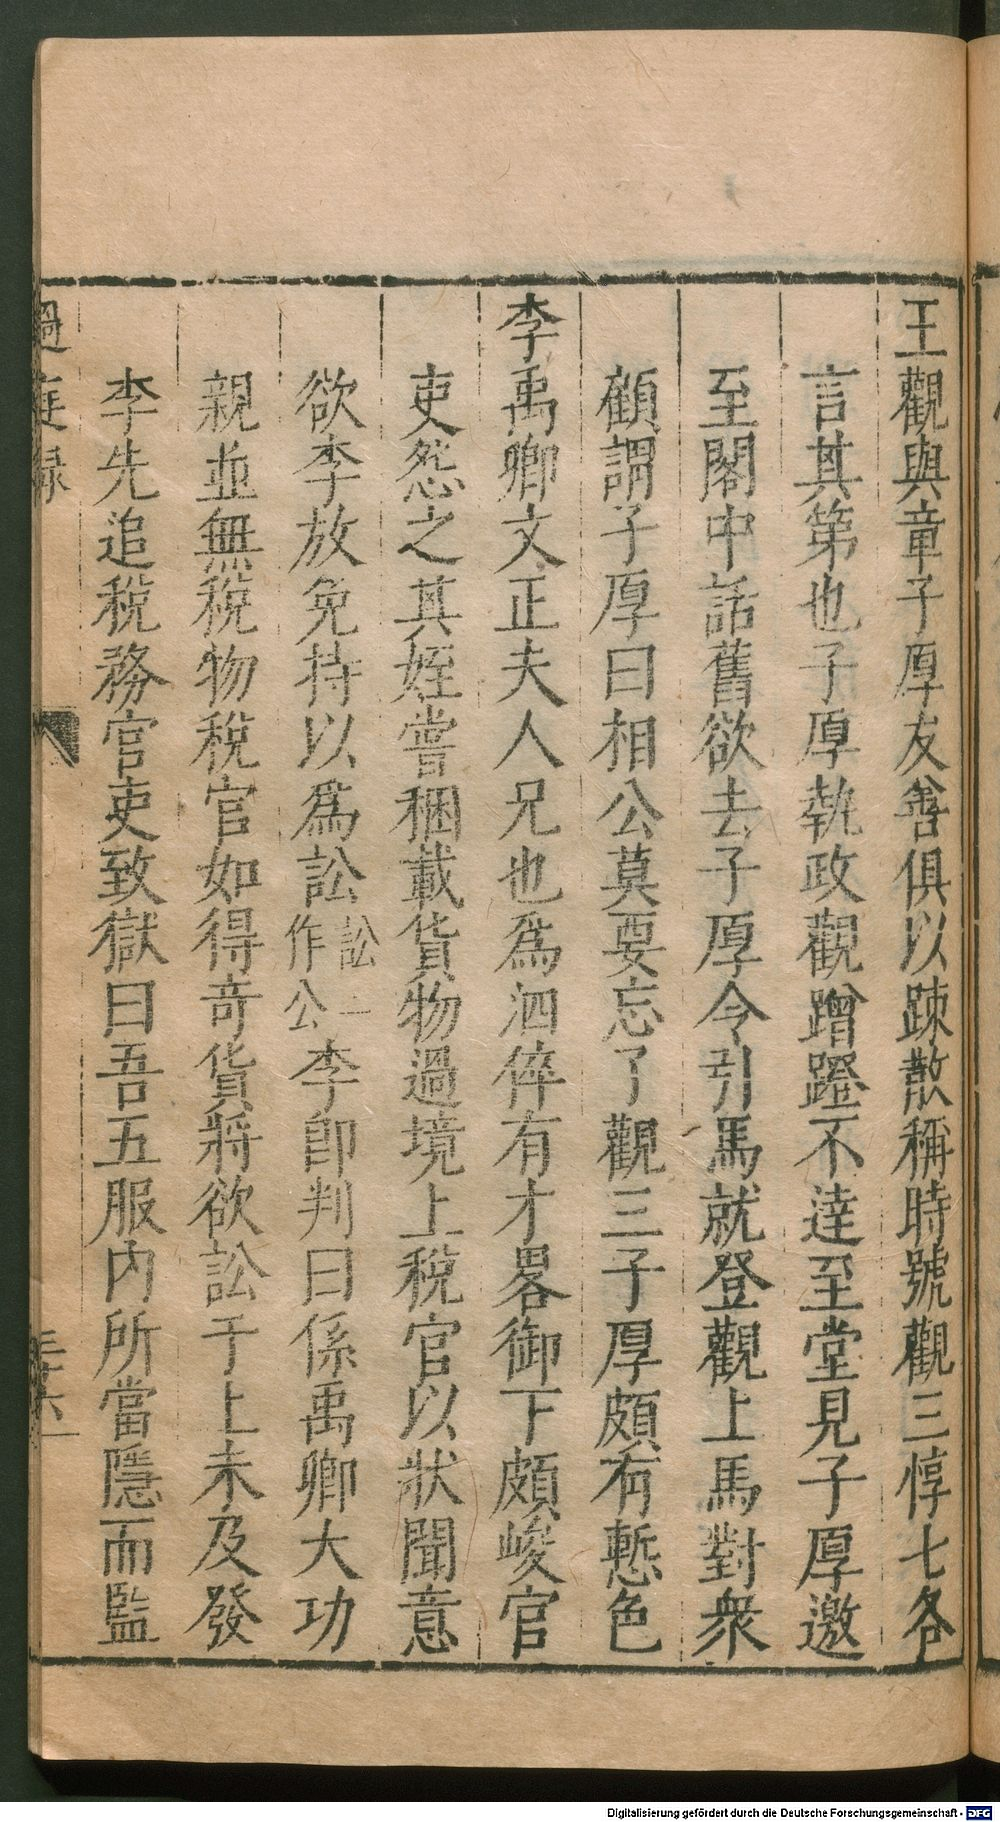 王觀與章子厚友善俱以踈散稱時號觀三惇七各
言其第也子厚執政觀蹭蹬不達至堂見子厚邀
至閣中話舊欲去子厚令引馬就登觀上馬對衆
顧謂子厚曰相公莫要忘了觀三子厚頗有慙色
李禹卿文正夫人兄也爲泗倅有才畧御下頗峻官
吏怨之其姪嘗稛載貨物過境上稅官以狀聞意
欲李放免持以爲訟訟一作公李卽判曰係禹卿大功
親並無稅物稅官如得奇貨將欲訟于上未及發
李先追稅務官吏致獄曰吾五服內所當隱而監
過庭錄
三十六
Digitalisierung gefördert durch die Deutsche Forschungsgemeinschaft - DFG